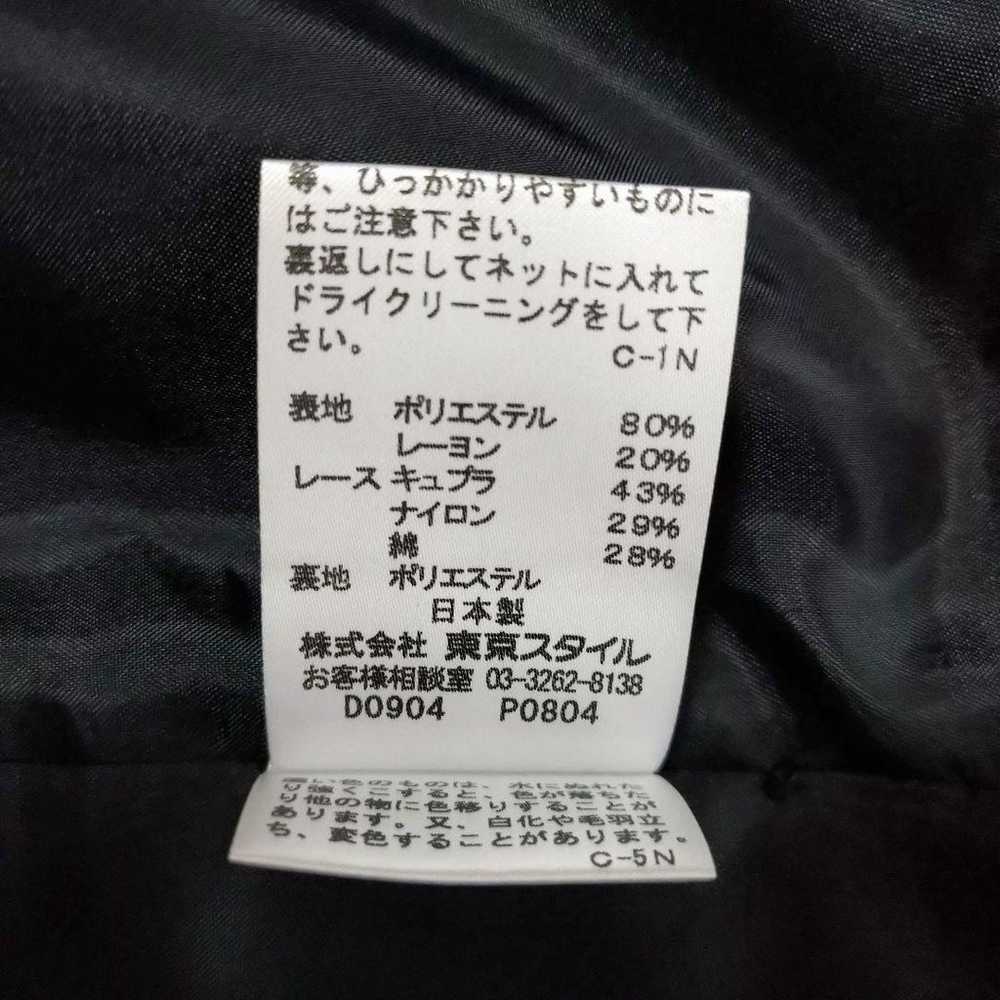 等、ひっかかりやすいものに
はご注意下さい。
裏返しにしてネットに入れて
ドライクリーニングをして下
さい。 C-1N
表地 ポリエステル 80%
レーヨン 20%
レース キュプラ 43%
ナイロン 29%
綿 28%
裏地 ポリエステル
日本製
株式会社 東京スタイル
お客様相談室 03-3262-8138
D0904 P0804
濃い色のものは、水にぬれた
り強くこすると、色が落ちた
り他の物に色移りすることが
あります。又、白化や毛羽立
ち、変色することがあります。
C-5N